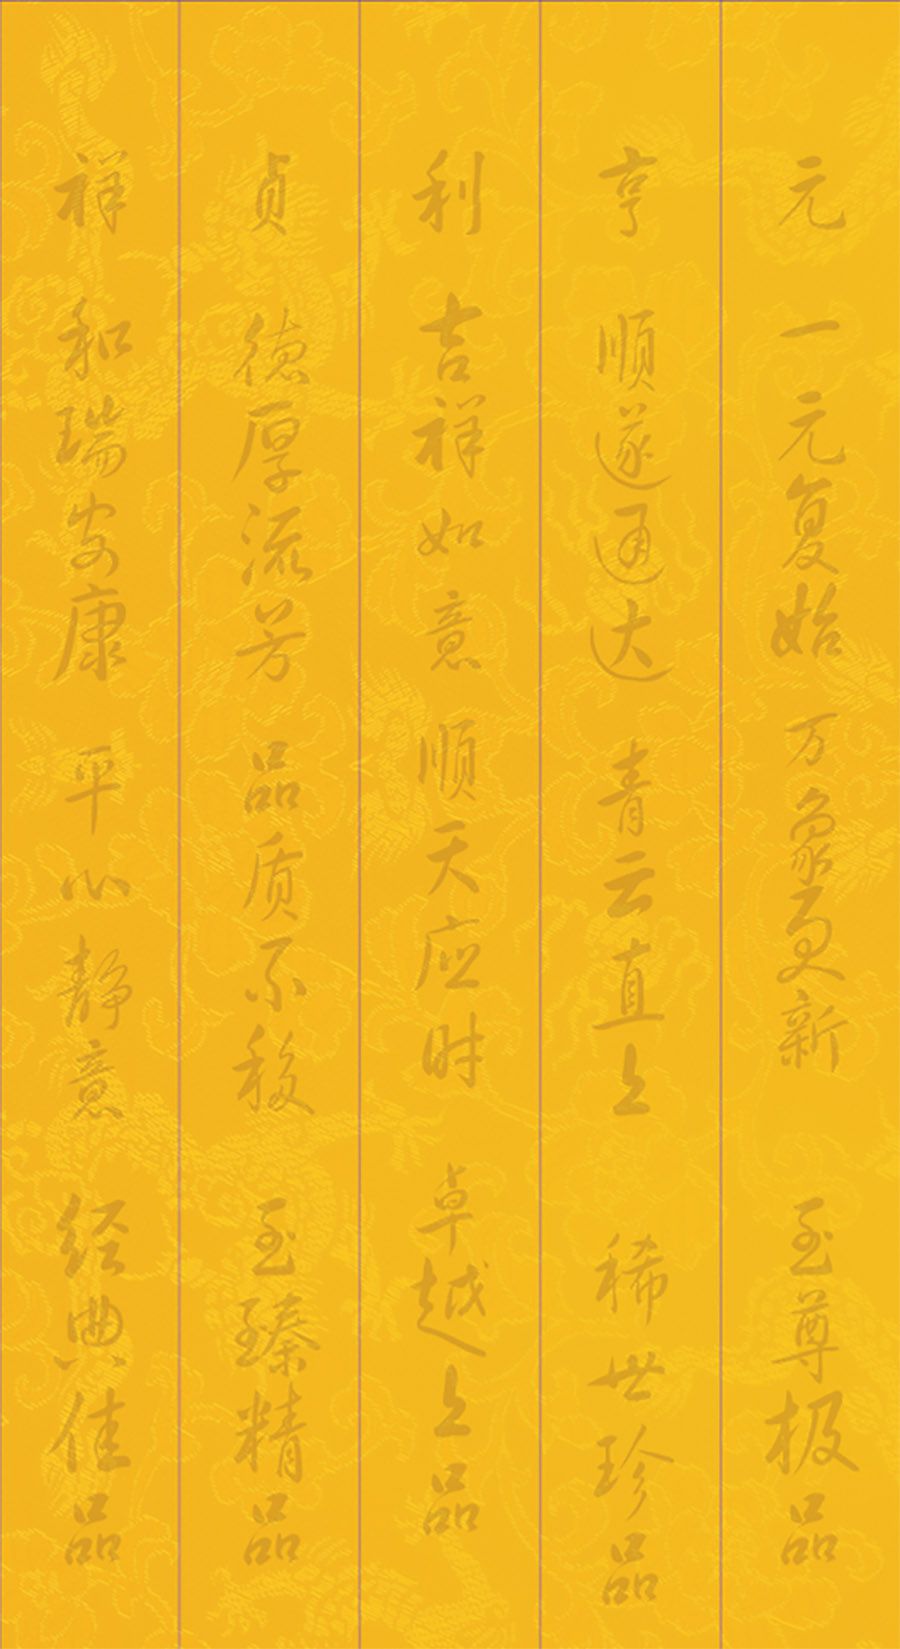 元 一元复始 万象更新 至尊极品
亨 顺遂通达 青云直上 稀世珍品
利 吉祥如意 顺天应时 卓越上品
贞 德厚流芳 品质不移 至臻精品
祥 和瑞安康 平心静意 经典佳品